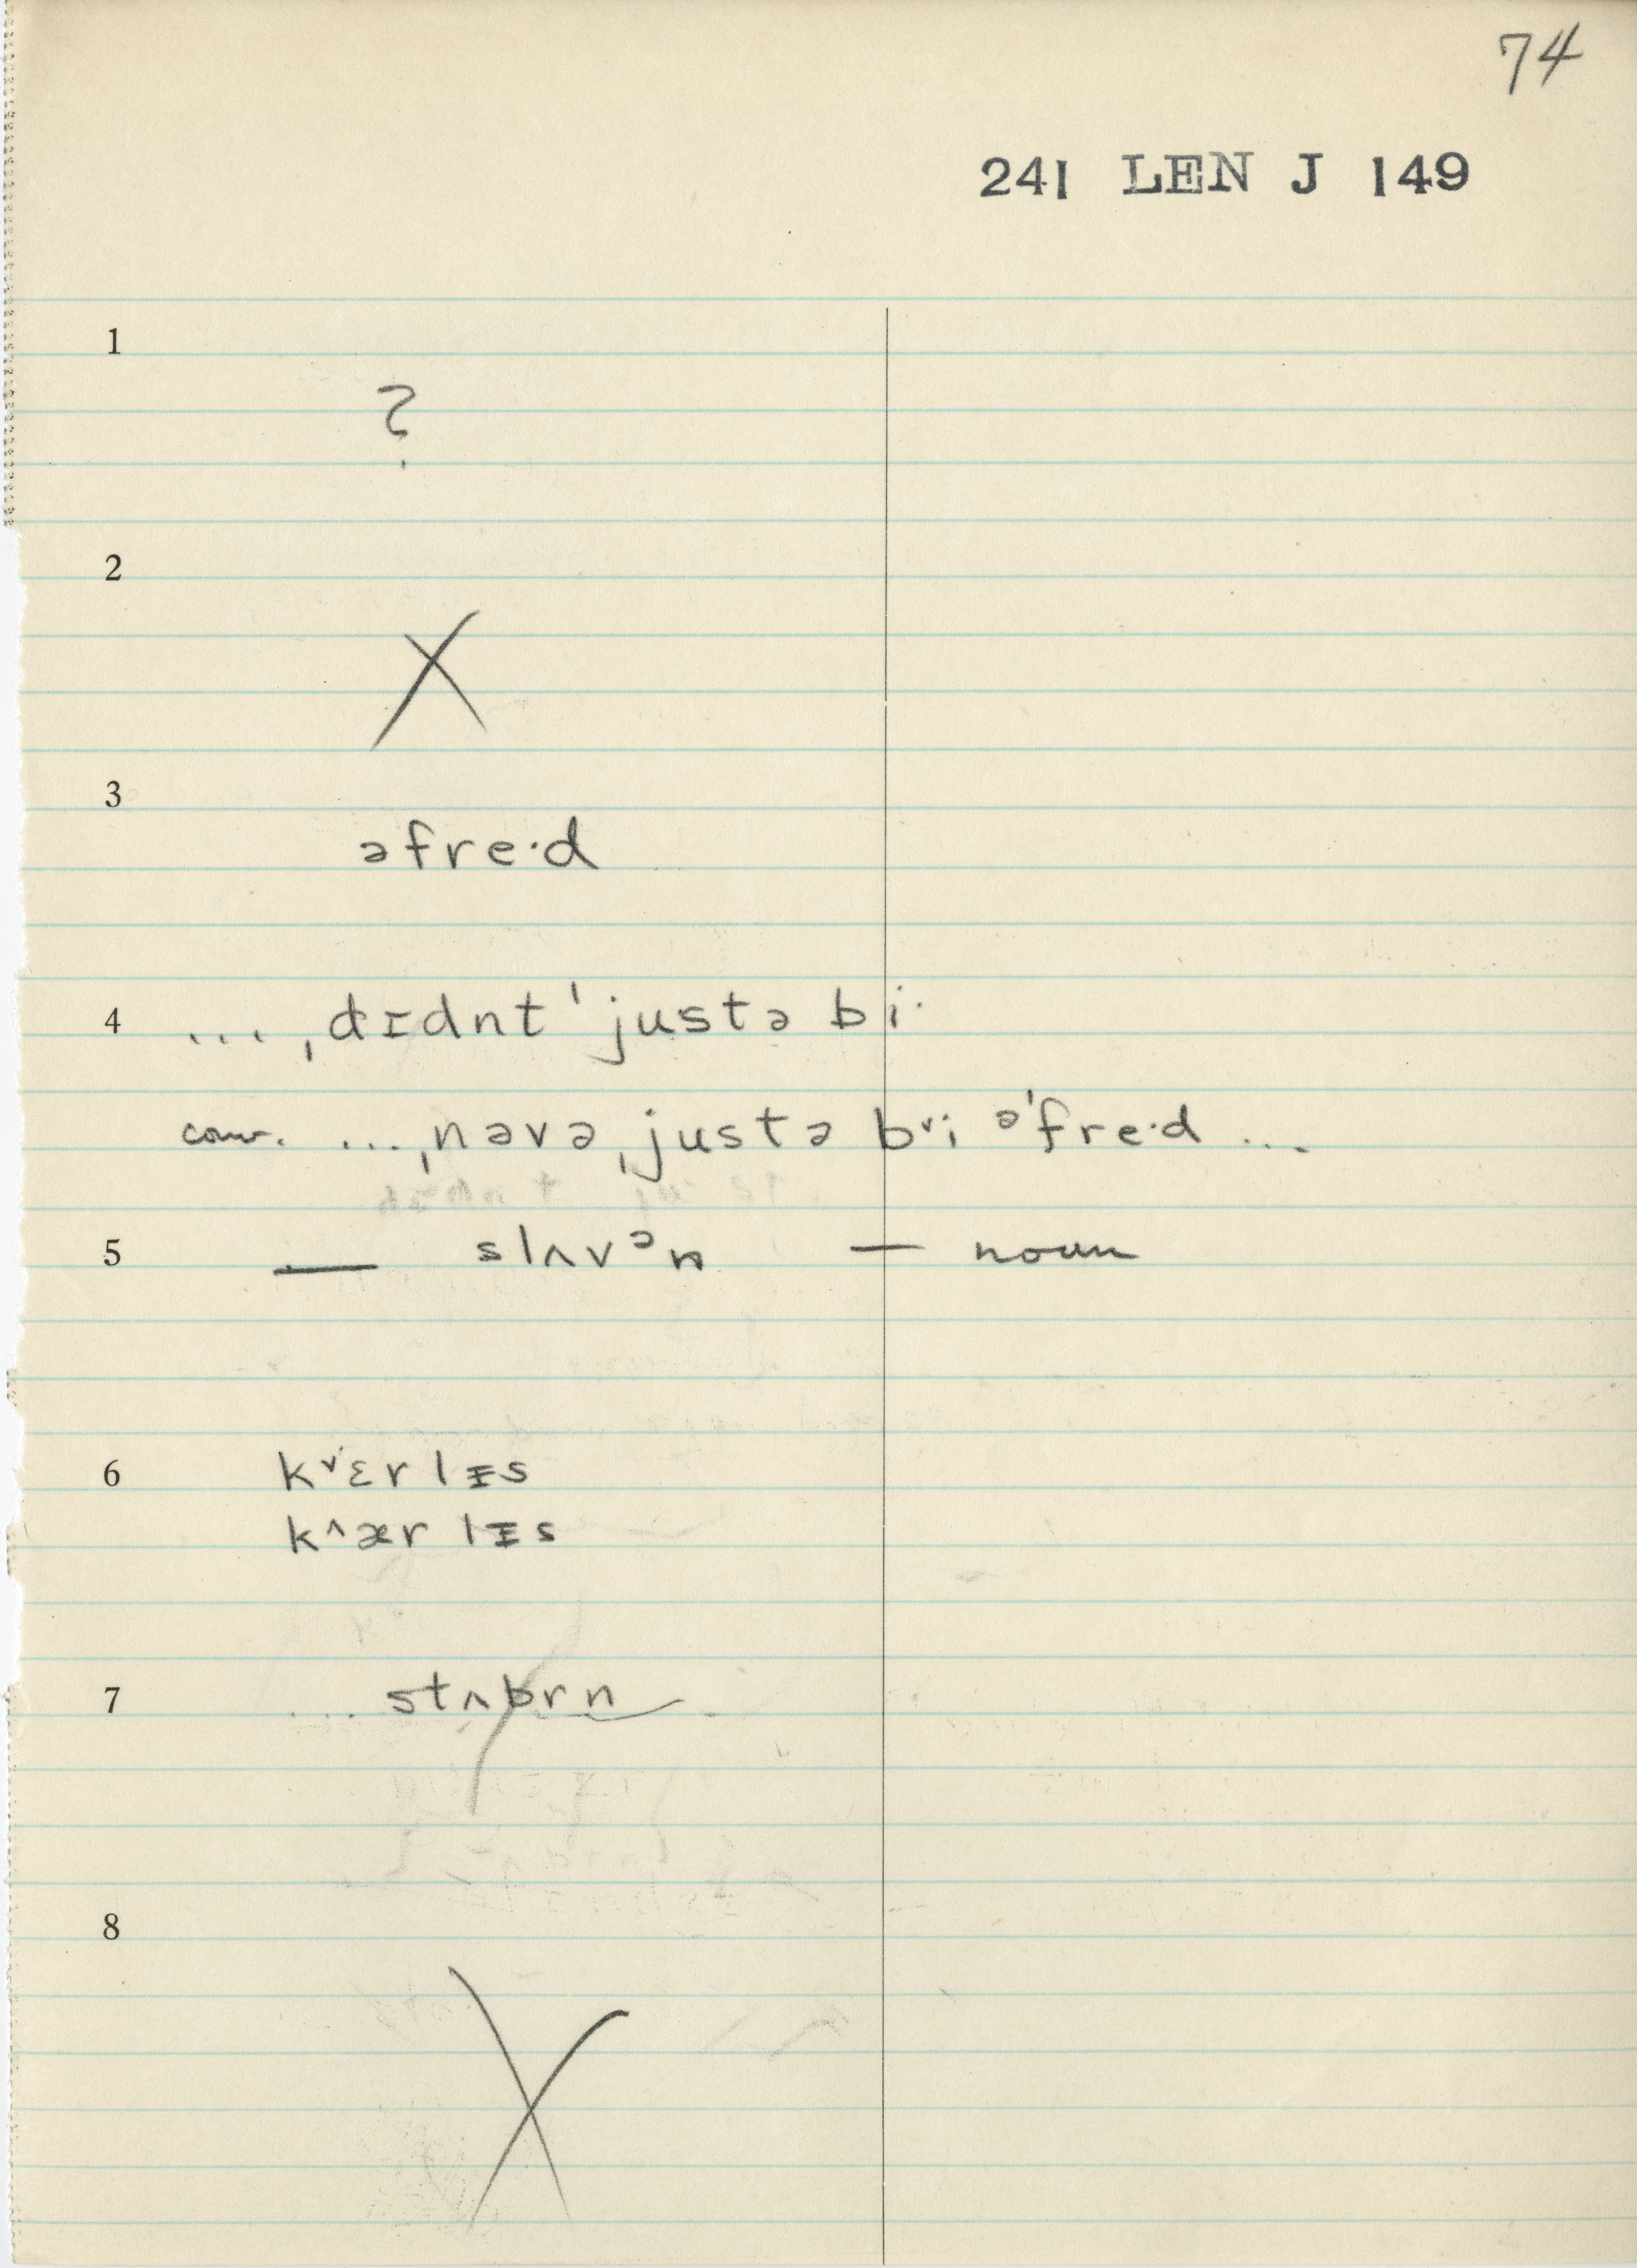 74
241 LEN J 149
1
?
2
X
3
əfre·d
4 ... ˌdɪdnt ˈjustə bi·
conv. ... ˌnəvə ˌjustə bᵛi əˈfre·d ...
5 — slʌvᵊn — noun
6 k˅ɛrlɪ̵s
k^ærlɪ̵s
7 ... stʌbrn
8
X